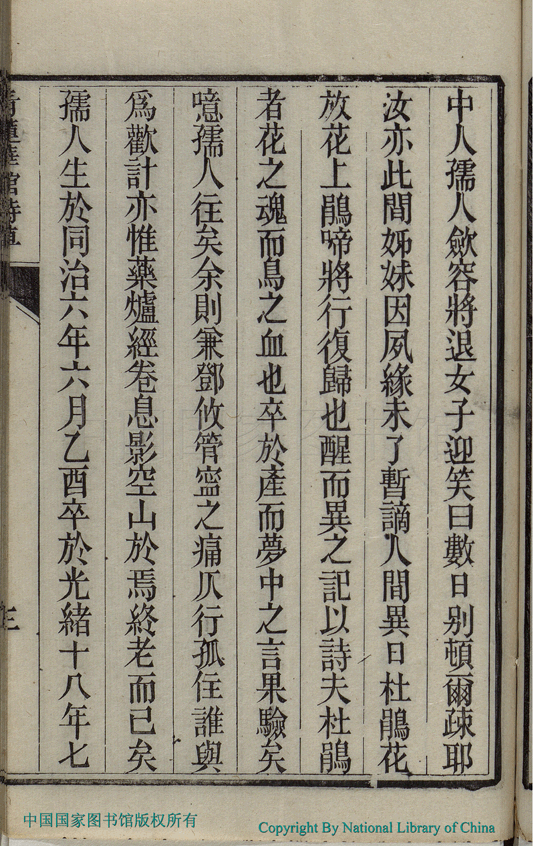 中人孺人歛容將退女子迎笑曰數日别頓爾疎耶
汝亦此間姊妹因夙緣未了暫謫人間異日杜鵑花
放花上鵑啼將行復歸也醒而異之記以詩夫杜鵑
者花之魂而鳥之血也卒於產而夢中之言果驗矣
噫孺人往矣余則兼鄧攸管寧之痛仄行孤住誰與
爲歡計亦惟藥爐經卷息影空山於焉終老而已矣
孺人生於同治六年六月乙酉卒於光緒十八年七
中国国家图书馆版权所有
Copyright By National Library of China